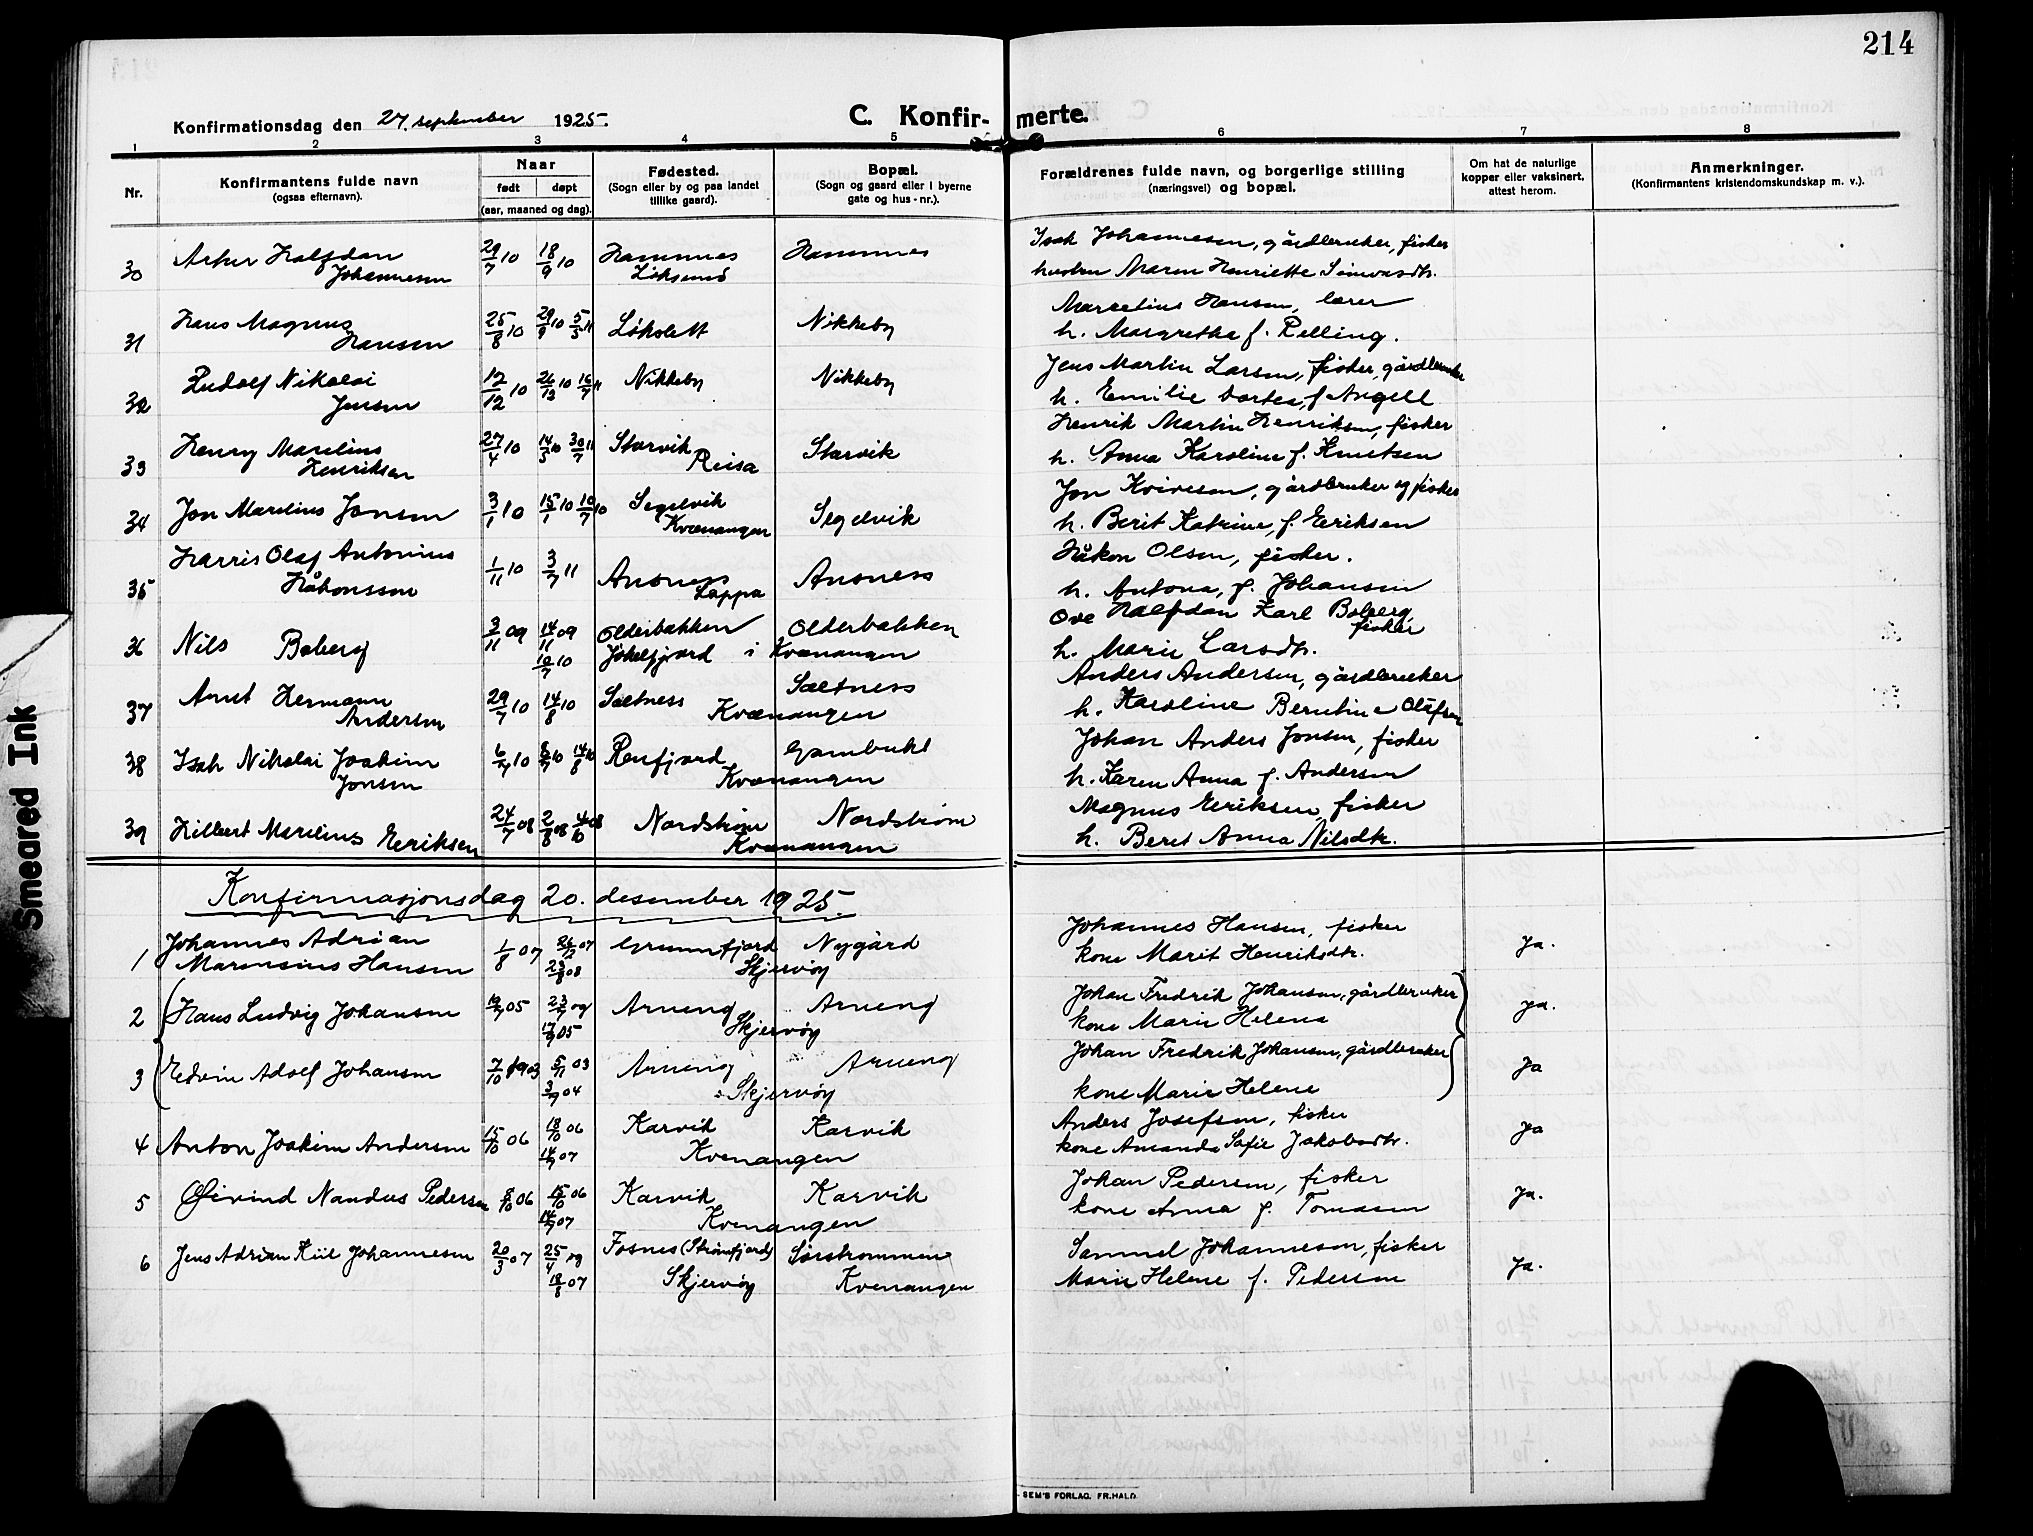 214
Konfirmationsdag den 27. september 1925.
C. Konfir- merte.
1 2 3 4 5 6 7 8
Nr.
Konfirmantens fulde navn
(ogsaa efternavn).
Naar
født døpt
(aar, maaned og dag).
Fødested.
(Sogn eller by og paa landet
tillike gaard).
Bopæl.
(Sogn og gaard eller i byerne
gate og hus-nr.).
Forældrenes fulde navn, og borgerlige stilling
(næringsvei) og bopæl.
Om hat de naturlige
kopper eller vaksinert,
attest herom.
Anmerkninger.
(Konfirmantens kristendomskundskap m. v.).
30 Halfdan 29/7 10 18/9 10 Hamnnes Hamnnes Isak Johannesen, gårdbruker, fisker
Johannesen hustru Maren Henriette
31 Hans Magnus 25/8 10 29/9 10 5/3 11 Løkslett Nikkeby Marcelius Hansen, lærer
Hansen h. Margrethe f. Relling.
32 Ludolf Nikolai 12/12 10 26/12 10 16/7 11 Nikkeby Nikkeby Jens Martin Larsen, fisker, gårdbruker
Jensen h. Emilie Dortea, f Angell
33 Henry Marelius 27/4 10 14/5 10 30/7 11 Storvik Storvik Henrik Martin Henriksen, fisker
Henriksen Reisa h. Anna Karoline f. Knutsen
34 Jon Marelius Jonsen 3/1 10 15/1 10 10/7 10 Segelvik Segelvik Jon Kvivesen, gårdbruker og fisker
Kvænangen h. Berit Katrine, f. Eriksen
35 Harris Olaf Antonius 1/11 10 3/7 11 Ansness Ansness Håkon Olsen, fisker.
Håkonssen Loppa h. Antona, f. Johansen
36 Nils Boberg 3/11 09 14/11 09 Olderbakken Olderbakken Ove Halfdan Karl Boberg, fisker
10/7 10 Jøkelfjord i Kvænangen h. Marie Larsdtr.
37 Arnt Hermann 29/7 10 14/8 10 Saltness Saltness Anders Andersen, gårdbruker
Andersen Kvænangen h. Karoline Berntine Olufsen
38 Isak Nikolai Joakim 6/7 10 8/7 10 14/8 10 Reinfjord Gambukt Johan Anders Jonsen, fisker
Jonsen Kvænangen h. Karen Anna f. Andersen
39 Hilbert Marelius Eriksen 24/7 08 2/8 08 4/10 08 Nordstrøm Nordstrøm Magnus Eriksen, fisker
Kvænangen h. Beret Anna Nilsdtr.
Konfirmasjonsdag 20. desember 1925.
1 Johannes Adrian 1/8 07 26/12 07 Grunnfjord Nygård Johannes Hansen, fisker Ja.
Marensius Hansen 23/8 08 Skjervøy kone Marit Henriksdtr.
2 Hans Ludvig Johansen 05 23/7 09 Arneng Arneng Johan Fredrik Johansen, gårdbruker Ja.
17/9 05 Skjervøy kone Marie Helene
3 Edvin Adolf Johansen 7/10 1903 5/11 03 Arneng Arneng Johan Fredrik Johansen, gårdbruker Ja
3/9 04 Skjervøy kone Marie Helene
4 Anton Joakim Andersen 15/10 06 18/10 06 Karvik Karvik Anders Josefsen, fisker Ja
14/7 07 Kvenangen kone Amanda Sofie Jakobsdtr.
5 Øivind Nandus Pedersen 8/10 06 15/10 06 Karvik Karvik Johan Pedersen, fisker Ja.
14/7 07 Kvenangen kone Anna f. Tomasen
6 Jens Adrian Kiil Johannesen 20/3 07 25/4 09 Fosnes (Strømfjord) Sørstrommen Samuel Johannesen, fisker Ja.
18/8 07 Skjervøy Kvenangen Marie Helene f. Pedersen
SEM'S FORLAG. FR.HALD.
Smeared Ink